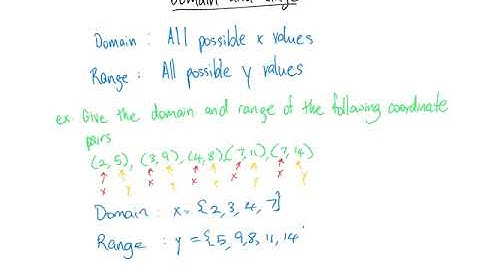 Domain and
Domain : All possible x values
Range : All possible y values
ex. Give the domain and range of the following coordinate
pairs
(2,5), (3,9), (4,8), (7,11), (7,14)
x y x y x y x y x y
Domain : x = {2,3,4,7}
Range : y = {5,9,8,11,14